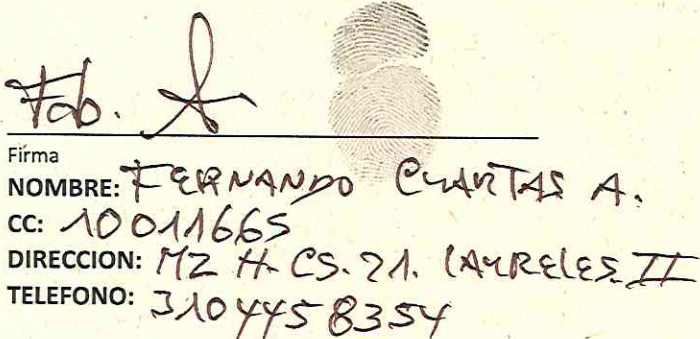 Fab. A
Firma
NOMBRE: FERNANDO CUARTAS A.
CC: 10011665
DIRECCION: MZ H CS. 21. LAURELES II
TELEFONO: 3104458354